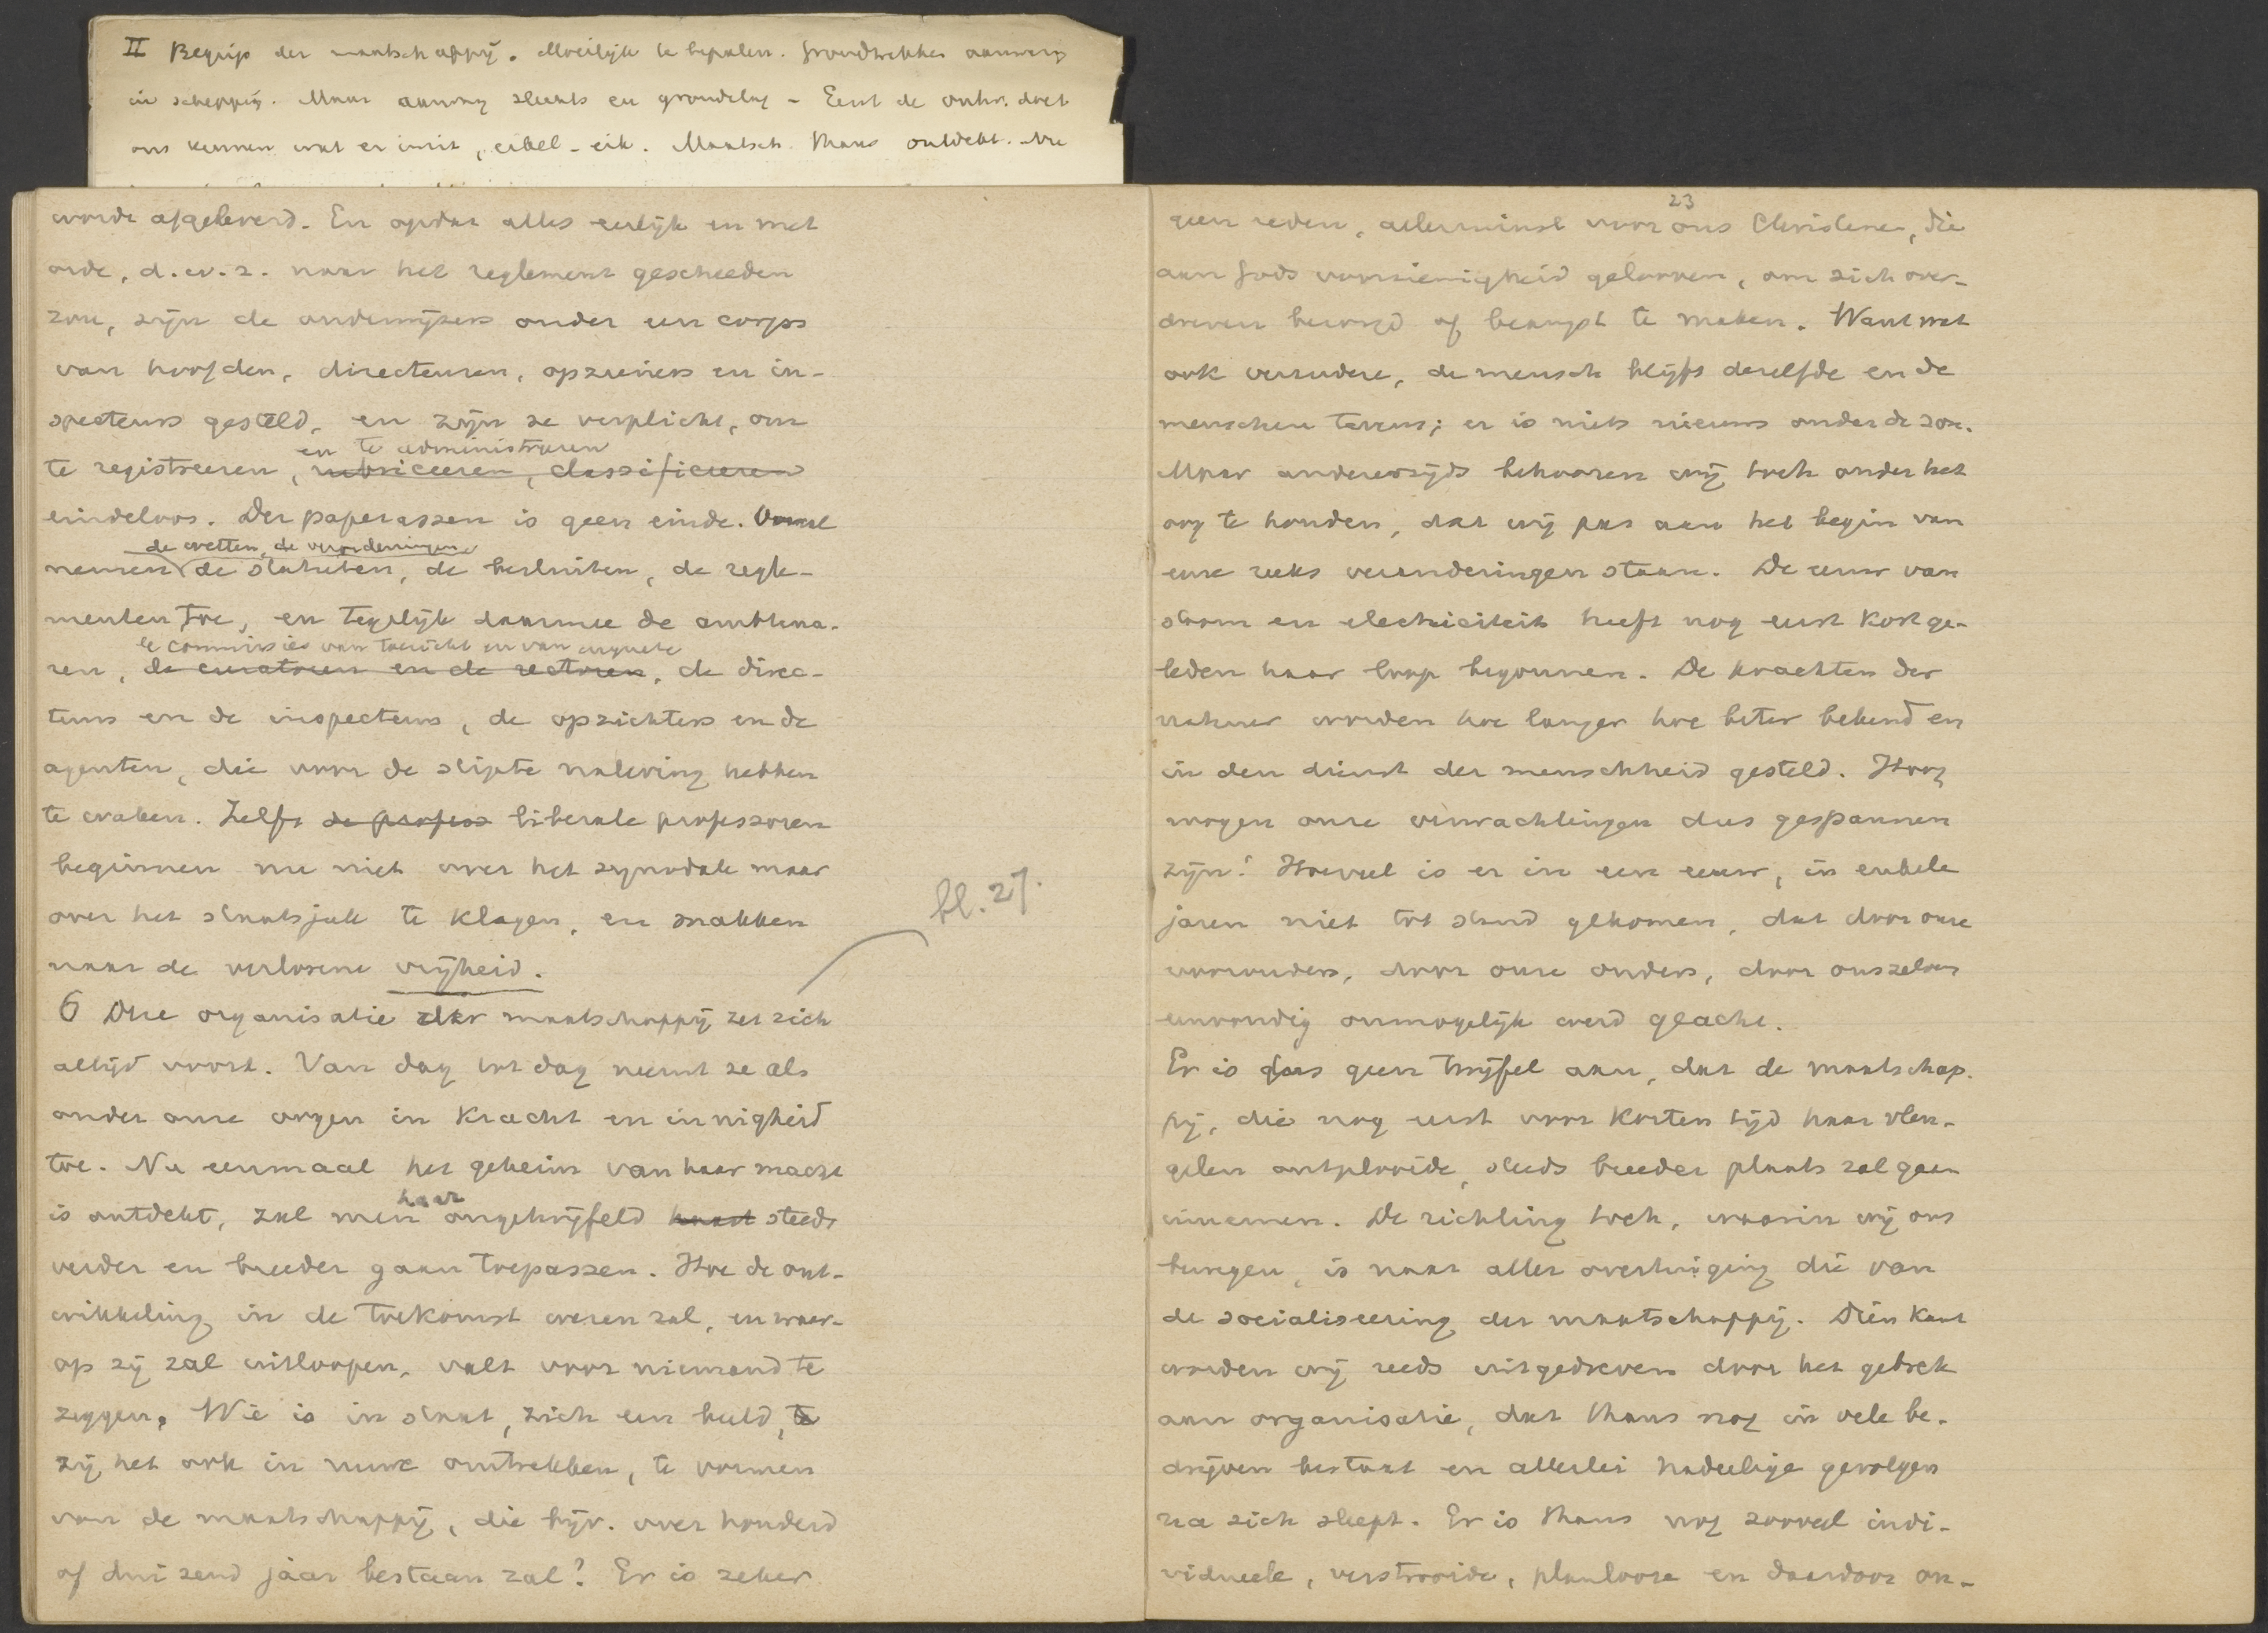 II Begrip der maatschappij. Moeilijk te bepalen. Grondtrekken aanwezig
in schepping. Maar aanwezig slechts en grondslag - Eerst de ontw. doet
ons kennen wat er in is, eikel - eik. Maatsch. thans ontdekt. Nu
worde afgeleverd. En opdat alles eerlijk en met
orde, d.w.z. naar het reglement geschieden
zou, zijn de onderwijzers onder een corps
van hoofden, directeuren, opzieners en in-
specteurs gesteld, en zijn ze verplicht, om
en te administreeren
te registreeren, rubriceeren, classificeeren
eindeloos. Der paperassen is geen einde. Vooral
de wetten, de verordeningen
nemen de statuten, de besluiten, de regle-
menten toe, en tegelijk daarmee de ambtena-
de commissies van toezicht en van enquete
ren, de curatoren en de rectoren, de direc-
teurs en de inspecteurs, de opzichters en de
agenten, die voor de stipte naleving hebben
te waken. Zelfs de profess liberale professoren
beginnen nu niet over het synodale maar
over het staatsjuk te klagen, en snakken
naar de verlorene vrijheid.
bl. 27.
6 Die organisatie der maatschappij zet zich
altijd voort. Van dag tot dag neemt ze als
onder onze oogen in kracht en innigheid
toe. Nu eenmaal het geheim van haar macht
haar
is ontdekt, zal men ongetwijfeld haar steeds
verder en breeder gaan toepassen. Hoe de ont-
wikkeling in de toekomst wezen zal, en waar-
op zij zal uitloopen, valt voor niemand te
zeggen. Wie is in staat, zich een beeld, te
zij het ook in ruwe omtrekken, te vormen
van de maatschappij, die bijv. over honderd
of duizend jaar bestaan zal? Er is zeker
23
geen reden, allerminst voor ons Christenen, die
aan Gods voorzienigheid gelooven, om zich over-
dreven bezorgd of beangst te maken. Want wat
ook verandere, de mensch blijft dezelfde en de
menschen tevens; er is niets nieuws onder de zon.
Maar anderzijds behooren wij toch onder het
oog te houden, dat wij pas aan het begin van
eene reeks veranderingen staan. De eeuw van
stoom en electriciteit heeft nog eerst kort ge-
leden haar loop begonnen. De krachten der
natuur worden hoe langer hoe beter bekend en
in den dienst der menschheid gesteld. Hoog
mogen onze verwachtingen dus gespannen
zijn! Hoeveel is er in een eeuw, in enkele
jaren niet tot stand gekomen, dat door onze
voorouders, door onze ouders, door onszelven
eenvoudig onmogelijk werd geacht.
Er is dus geen twijfel aan, dat de maatschap-
pij, die nog eerst voor korten tijd haar vleu-
gelen ontplooide, steeds breeder plaats zal gaan
innemen. De richting toch, waarin wij ons
bewegen, is naar aller overtuiging die van
de socialiseering der maatschappij. Dien kant
worden wij reeds uitgedreven door het gebrek
aan organisatie, dat thans nog in vele be-
drijven bestaat en allerlei nadeelige gevolgen
na zich sleept. Er is thans nog zooveel indi-
vidueele, verstrooide, planlooze en daardoor on-